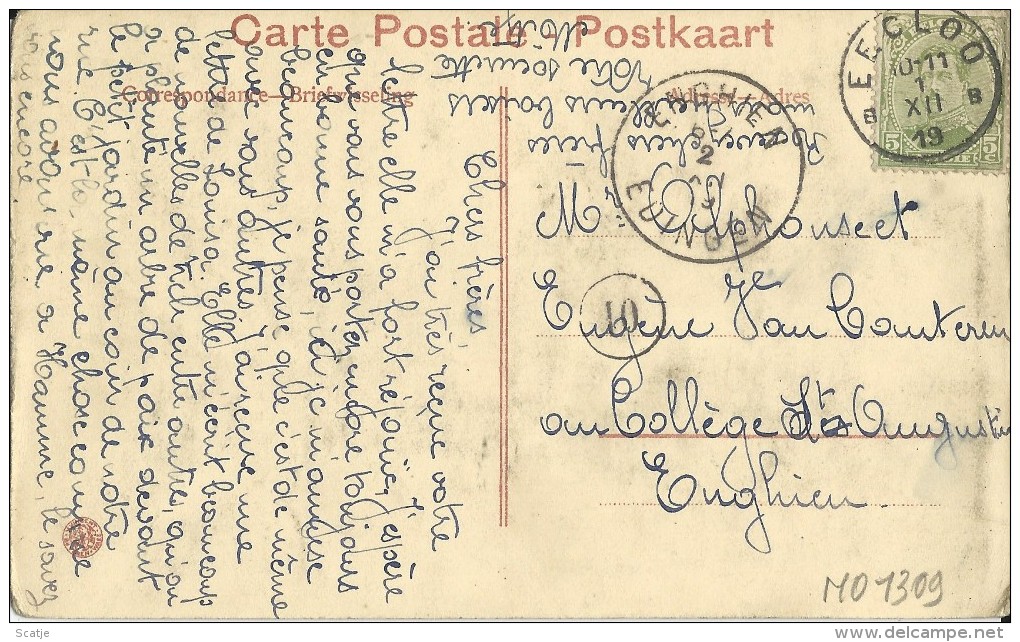 Carte Postale - Postkaart
Correspondance - Briefwisseling
Adresse - Adres
EECLOO
10-11
1
XII
19
B B
BELG
5c 5c
ENGHIEN
2
EDINGEN
10
Mr. Alphonse et
Eugène Van Cauteren
au Collège St Augustin
Enghien
Chers frères,
J'ai très reçue votre
lettre elle m'a fort réjouie, J'espère
que vous vous portez encore toujours
en bonne santé, et je m'amuse
beaucoup, je pense que c'est de même
avec vous autres, J'ai reçue une
lettre de Louisa, Elle m'écrit beaucoup
de nouvelles de entre autre, qu'on
a planté un arbre de paix devant
le petit jardin au coin de nôtre
rue. C'est la même chose comme
nous avons vue a Hamme, le savez
vous encore.
frères
baisers
Votre soeurette
MO 1309
Scatje
delcampe.net